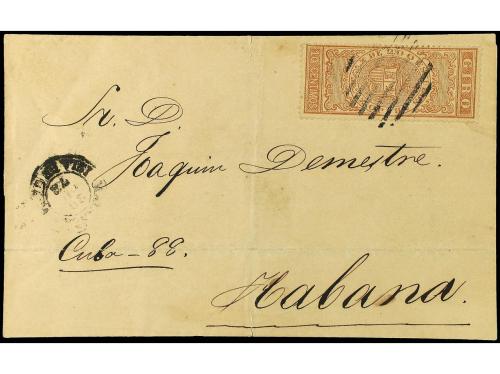 GIRO
Sr. D.
Joaquin Demestre.
Cuba - 88.
Habana.